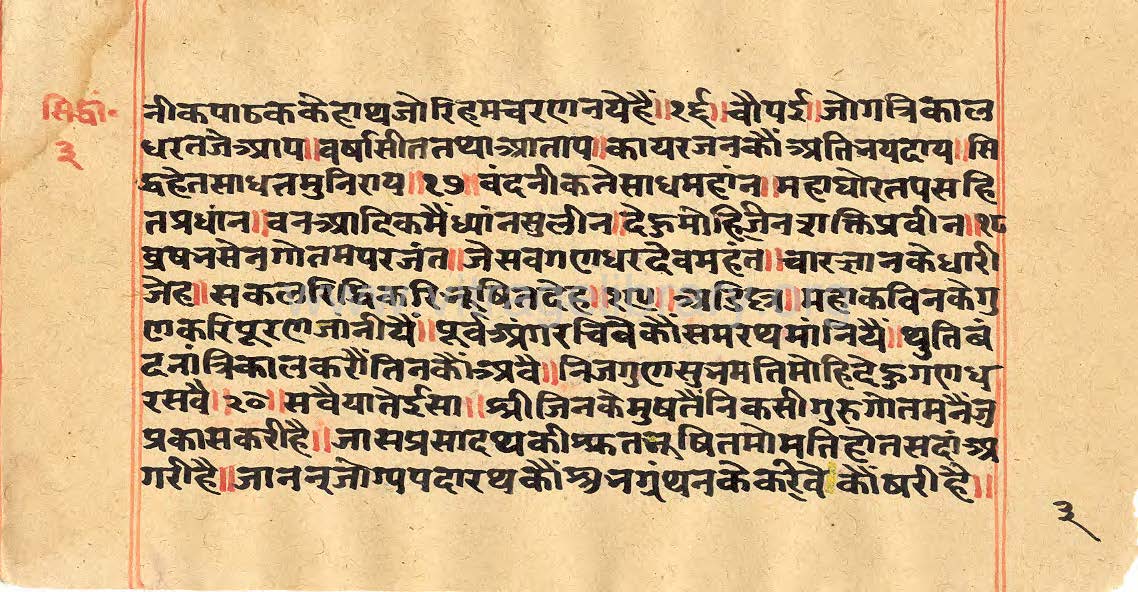 सिद्धां॰
३
नीकपाठककेहाथजोरिहमचरणनयेहैं॥१६॥चौपई॥जोगत्रिकाल
धरतजेआप॥वर्षासीततथाआताप॥कायरजनकौंअतिभयदाय॥सि
द्धहेतसाधतमुनिराय॥१७॥वंदनीकतेसाधमहांन॥महाघोरतपसहि
तप्रधांन॥वनआदिकमैंध्यांनसुलीन॥देहुमोहिजैनशक्तिप्रवीन॥१८
व्रषभसेनगोतमपरजंत॥जेसवगणधरदेवमहंत॥चारज्ञानकेधारी
जेह॥सकलरिद्धिकरिभूषितदेह॥१९॥अरिल्ल॥महाकविनकेगु
णकरिपूरणजानीयैं॥पूर्वअंगरचिवैकौसमरथमांनियैं॥थुतिबं
दनांत्रिकालकरौंतिनकौंअवै॥निजगुणसुभमतिमोहिदेहुगणध
रसवै॥२०॥सवैयातेईसा॥श्रीजिनकेमुषतैंनिकसीगुरुगोतमनैंजु
प्रकासकरीहै॥जासप्रसादथकीम्फतभूषितमोमतिहोतसदांअ
गरीहै॥जाननजोग्यपदारथकौंअभग्रंथनकेकरेवेकौंषरीहै॥
३